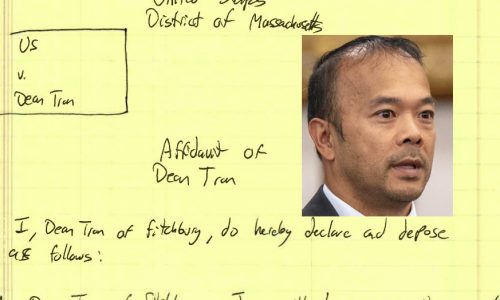 United States
District of Massachusetts
US
v.
Dean Tran
Affidavit of
Dean Tran
I, Dean Tran of fitchburg, do hereby declare and depose
as follows: